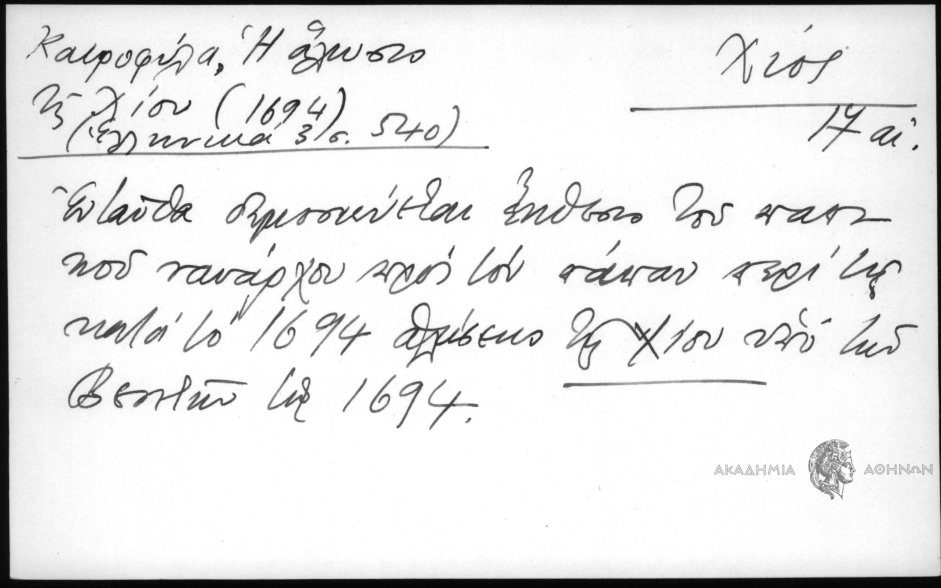 Καιροφύλα, Ἡ ἅλωσις
τῆς Χίου (1694)
(Ἑλληνικά 3, σ. 540)
Χίος
17 αἰ.
Ἐνταῦθα δημοσιεύεται ἔκθεσις τοῦ παπι-
κοῦ ναυάρχου πρὸς τὸν πάπαν περὶ τῆς
κατὰ τὸ 1694 ἁλώσεως τῆς Χίου ὑπὸ τῶν
Βενετῶν τῆς 1694.
ΑΚΑΔΗΜΙΑ ΑΘΗΝΩΝ